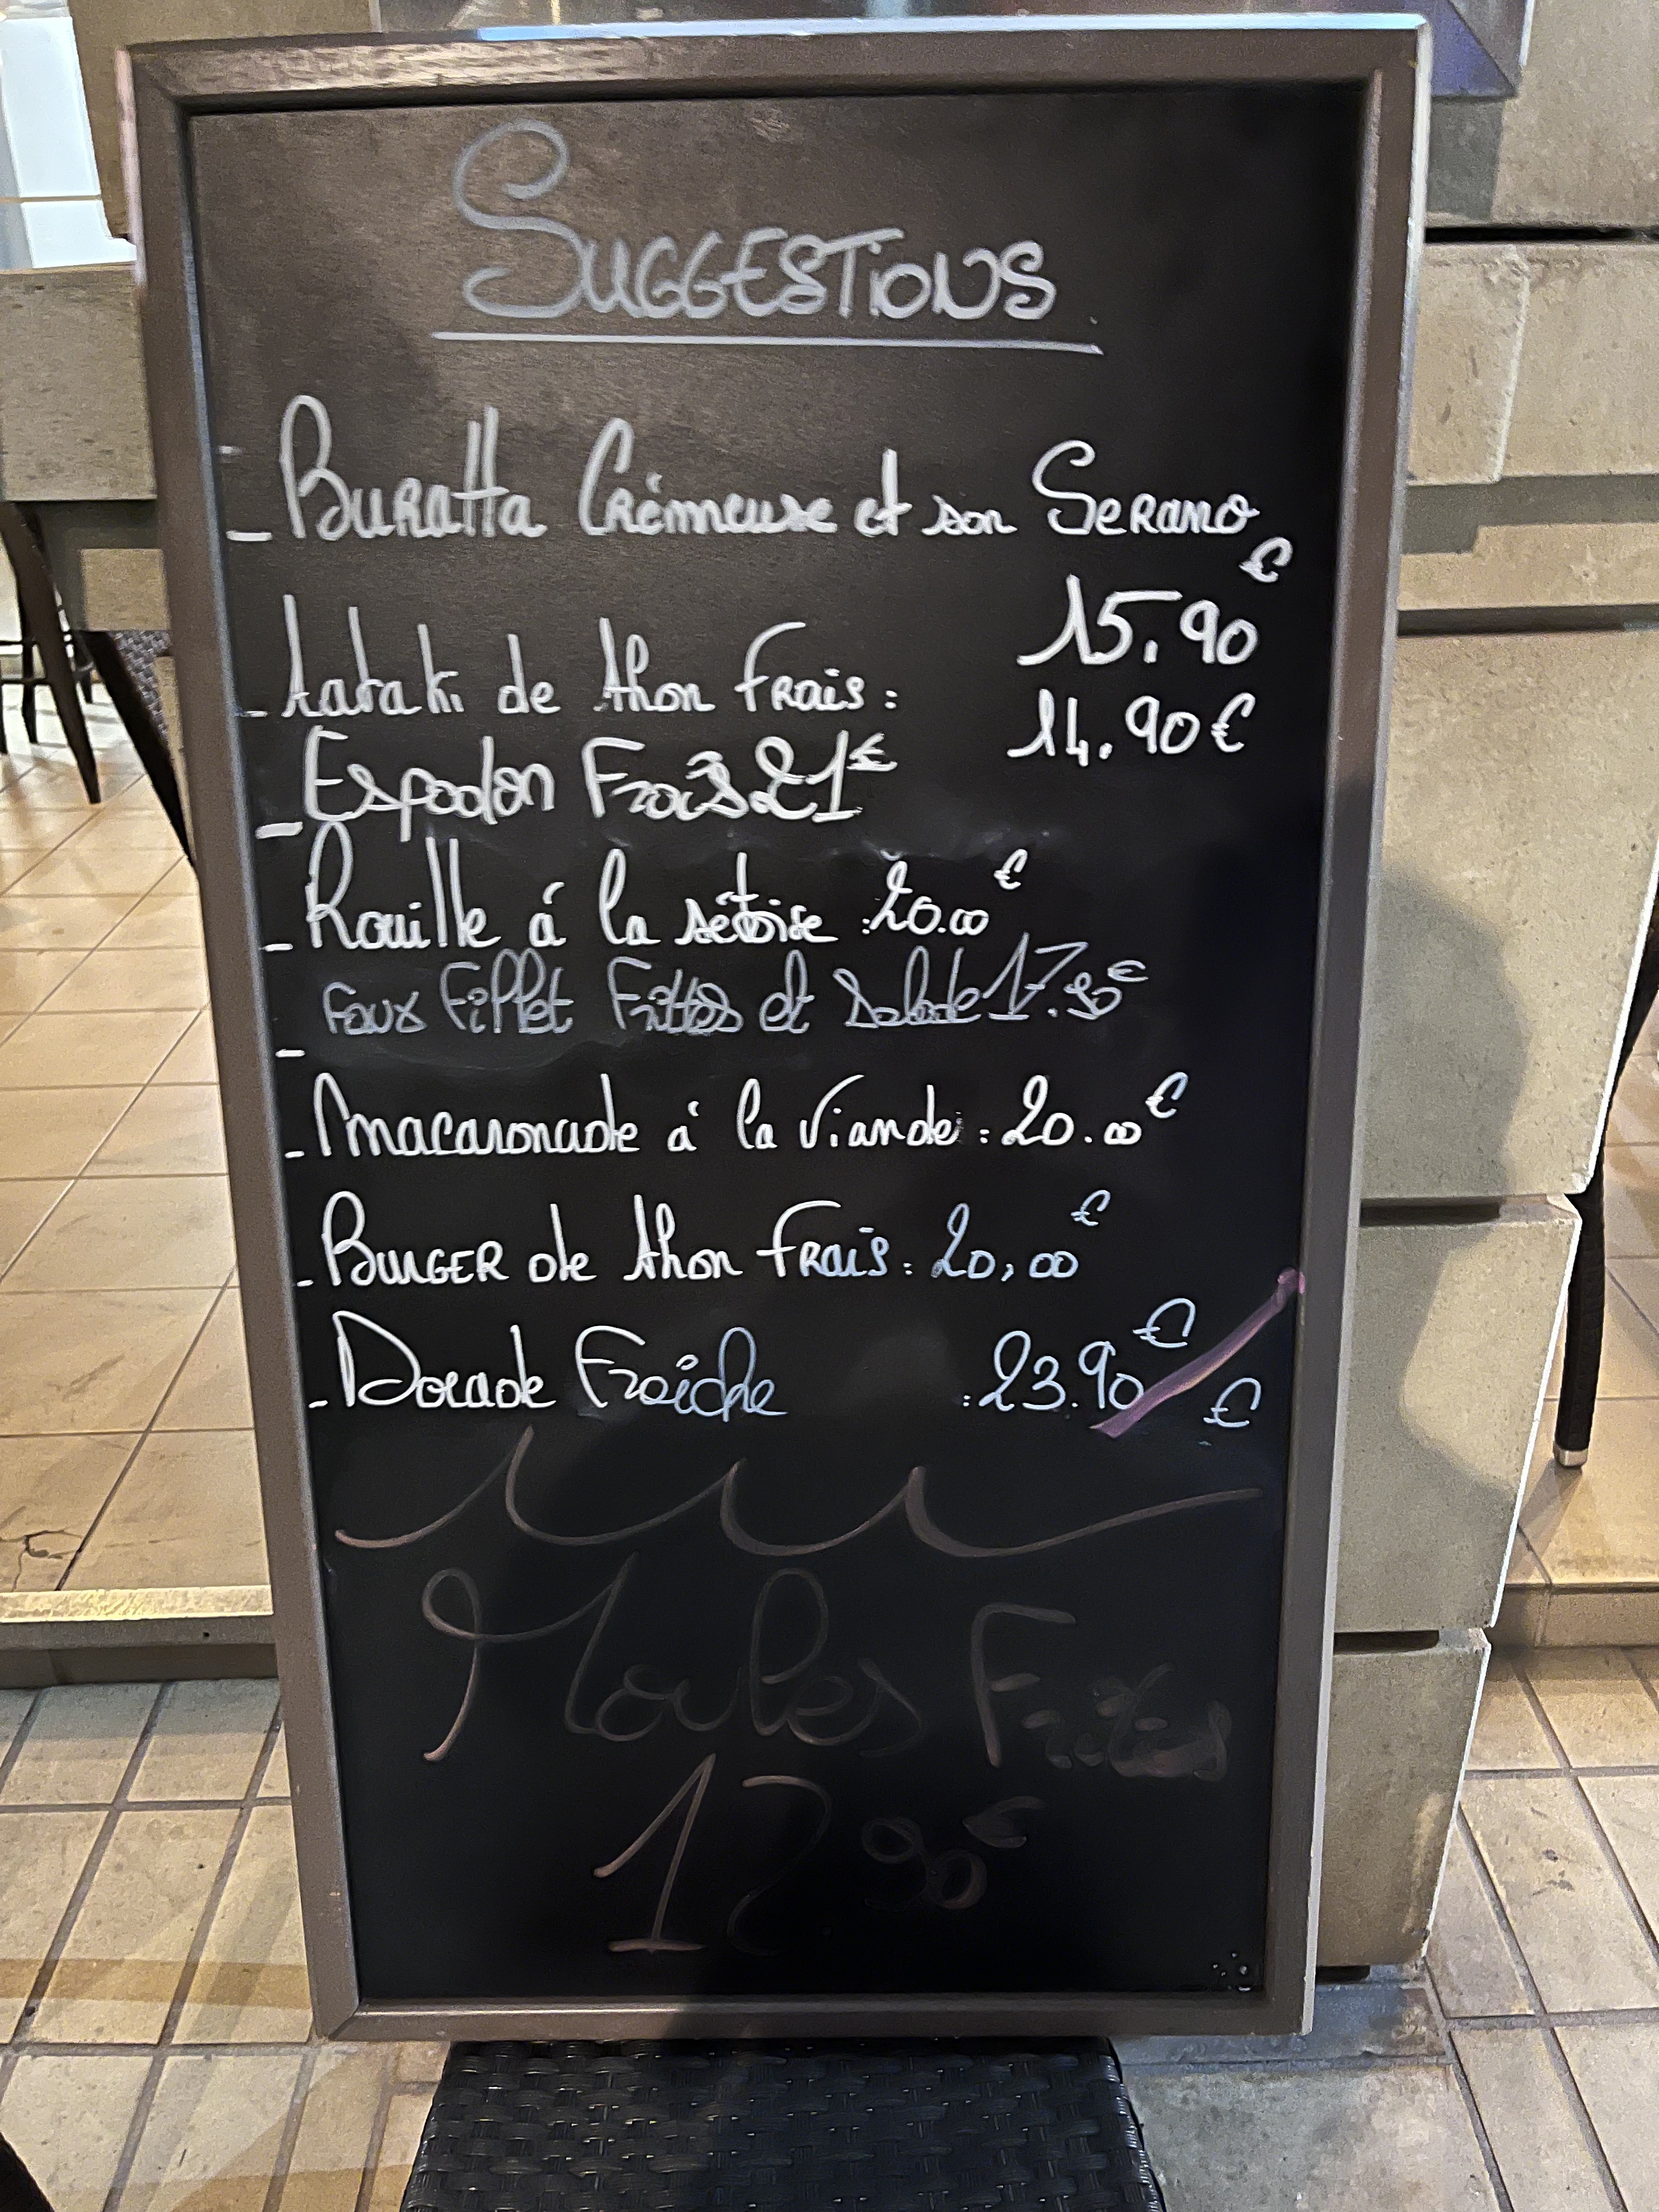 SUGGESTiONS
- BuRatta Crémeuse et son SeRano
15.90€
- tataki de thon FRais : 14.90€
- Espadon Frais 21€
- Rouille á la sétoise : 20.00€
- Faux Fillet Frittes et Salade 17.90€
- Macaronade á la Viande : 20.00€
- BURGER de thon FRais : 20,00€
- Dorade Fraîche : 23.90€
€
Moules Frites
12.90€